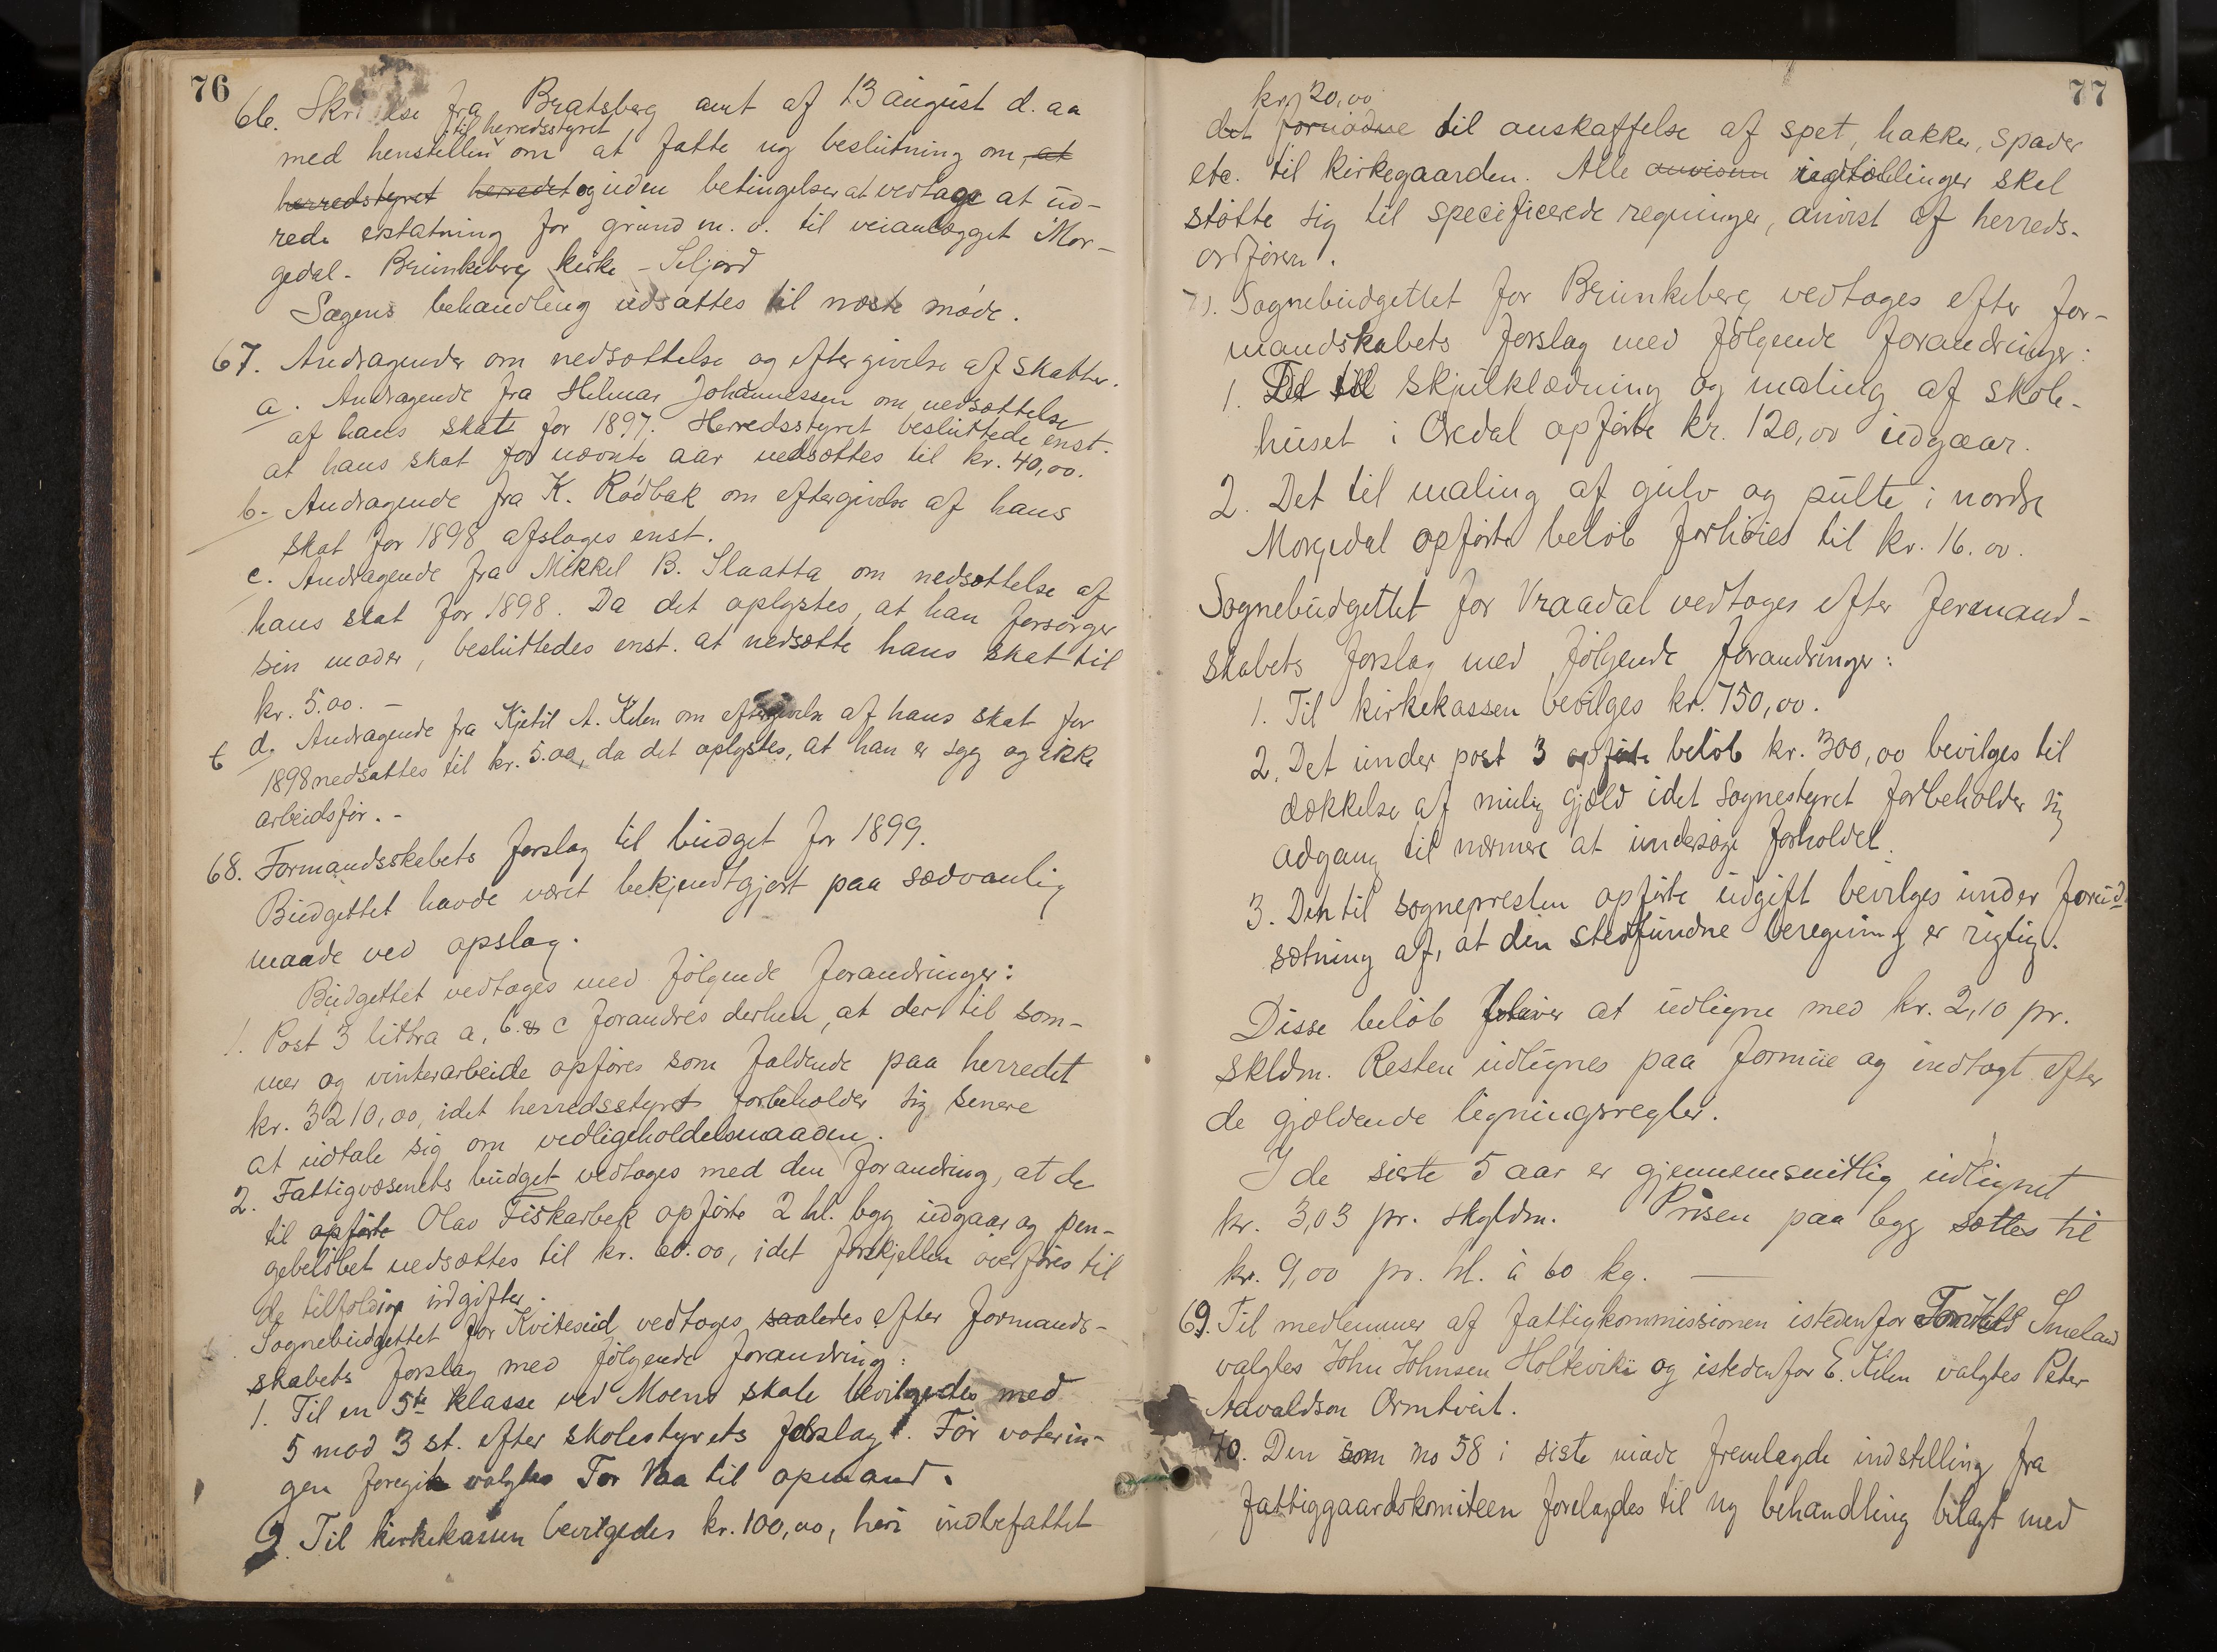 76
66. Skr else fra Bratsberg amt af 13 august d. aa
til herredsstyret
med henstillin om at fatte ny beslutning om, at
herredstyret herredet og uden betingelser at vedtage at ud-
rede erstatning for grund m. v. til veianlægget Mor-
gedal - Brunkeberg kirke - Seljord
Sagens behandling udsattes til næste møde.
67. Andragender om nedsættelse og eftergivelse af skatter.
a. Andragende fra Helmar Johannessen om nedsættelse
af hans skat for 1897. Herredsstyret besluttede enst.
at hans skat for nævnte aar nedsættes til kr. 40,00.
b. Andragende fra K. Rødbæk om eftergivelse af hans
skat for 1898 afslages enst.
c. Andragende fra Mikkel B. Slaatta om nedsættelse af
hans skat for 1898. Da det oplystes, at han forsørger
sin moder, besluttedes enst. at nedsætte hans skat til
kr. 5.00. —
d. Andragende fra Kjetil A. Kilen om eftergivelse af hans skat for
1898 nedsattes til kr. 5.00, da det oplystes, at han er syg og ikke
arbeidsfør. -
68. Formandsskabets forslag til budget for 1899.
Budgettet havde været bekjendtgjort paa sædvanlig
maade ved opslag.
Budgettet vedtages med følgende forandringer:
1. Post 3 littra a, b. & c forandres derhen, at der til som-
mer og vinterarbeide opføres som faldende paa herredet
kr. 3210,00, idet herredsstyret forbeholder sig senere
at udtale sig om vedligeholdelsmaaden.
2. Fattigvæsenets budget vedtages med den forandring, at de
til opførte Olav Fiskarbek opførte 2 hl. byg udgaar og pen-
gebeløbet nedsættes til kr. 60.00, idet forskjellen overføres til
de tilfældige udgifter.
Sognebudgettet for Kviteseid vedtages saaledes efter formands-
skabets forslag med følgende forandring:
1. Til en 5te klasse ved Moens skole bevilgedes med
5 mod 3 st. efter skolestyrets forslag. Før voterin-
gen foregik valgtes Tor Vaa til opmand.
2. Til kirkekassen bevilgedes kr. 100,00, heri indbefattet
77
kr. 20,00
det fornødne til anskaffelse af spet, hakker, spader
etc. til kirkegaarden. Alle anvisnin indtællinger skal
støtte sig til specificerede regninger, anvist af herreds-
ordføren.
Sognebudgettet for Brunkeberg vedtages efter for-
mandskabets forslag med følgende forandringer:
1. Det til skjulklædning og maling af skole-
huset i Oxdal opførte kr. 120,00 udgaar.
2. Det til maling af gulv og pulte i nordre
Morgedal opførte beløb forhøies til kr. 16.00.
Sognebudgettet for Vraadal vedtages efter formand-
skabets forslag med følgende forandringer:
1. Til kirkekassen bevilges kr. 750,00.
2. Det under post 3 opførte beløb kr. 300,00 bevilges til
dækkelse af mulig gjæld idet sognestyret forbeholder sig
adgang til nærmere at undersøge forholdet.
3. Den til sognepresten opførte udgift bevilges under forud-
sætning af, at den stedfundne beregning er rigtig.
Disse beløb bliver at udligne med kr. 2,10 pr.
skldm. Resten udlignes paa formue og indtægt efter
de gjældende ligningsregler.
I de siste 5 aar er gjennemsnitlig udlignet
kr. 3,03 pr. skyldm. Prisen paa byg sættes til
kr. 9,00 pr. hl. à 60 kg. —
69. Til medlemmer af fattigkommissionen istedenfor Smeland
valgtes John Johnsen Holtevike og istedenfor E. Kilen valgtes Peter
Aavaldson Ormtveit.
70. Den som no 58 i siste møde fremlagde indstilling fra
fattiggaardskomiteen forelagdes til ny behandling bilagt med